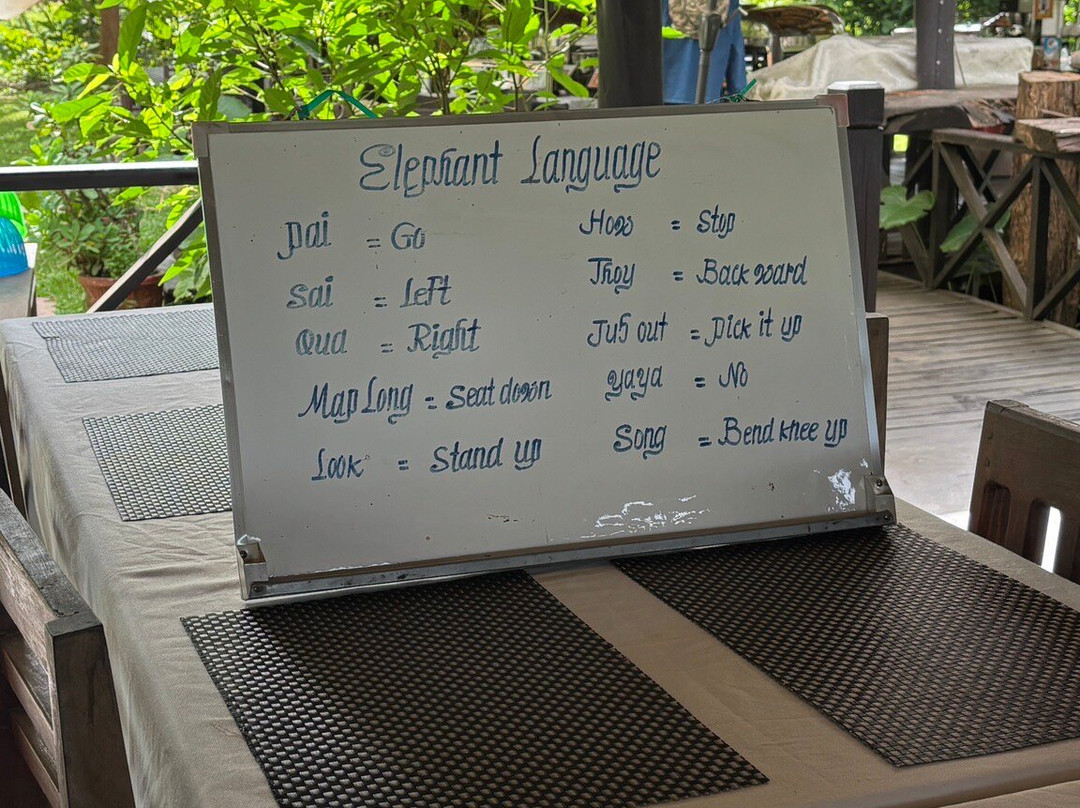 Elephant Language
Pai = Go
Sai = Left
Qua = Right
Map Long = Seat down
Look = Stand up
How = Stop
Thoy = Back ward
Jub out = Pick it up
yaya = No
Song = Bend knee up